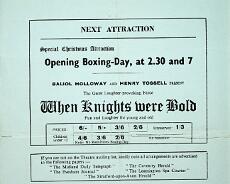 NEXT ATTRACTION
Special Christmas Attraction
Opening Boxing-Day, at 2.30 and 7
BALIOL HOLLOWAY AND HENRY TOSSELL PRESENT
The Great Laughter-provoking Farce
When Knights were Bold
Fun and Laughter for young and old
PRICES 6/- 5/- 3/6 2/6 1/3
4/6 3/6 2/6
If you are not on the Theatre mailing list, kindly note all arrangements are advertised
in the following papers :—
"The Midland Daily Telegraph" "The Coventry Herald"
"The Evesham Journal" "The Leamington Spa Courier"
"The Stratford-upon-Avon Herald"